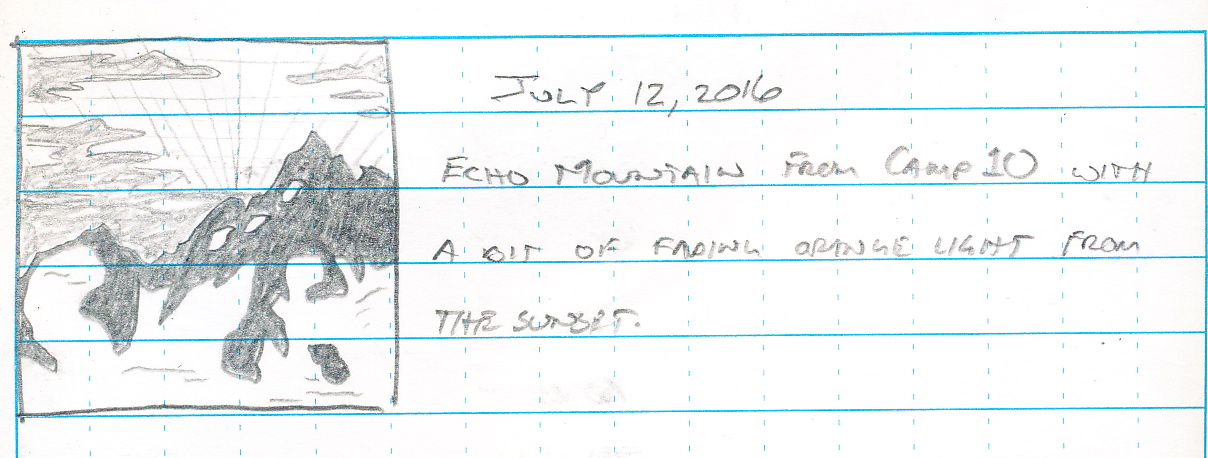 JULY 12, 2016
ECHO MOUNTAIN FROM CAMP 10 WITH
A BIT OF FADING ORANGE LIGHT FROM
THE SUNSET.